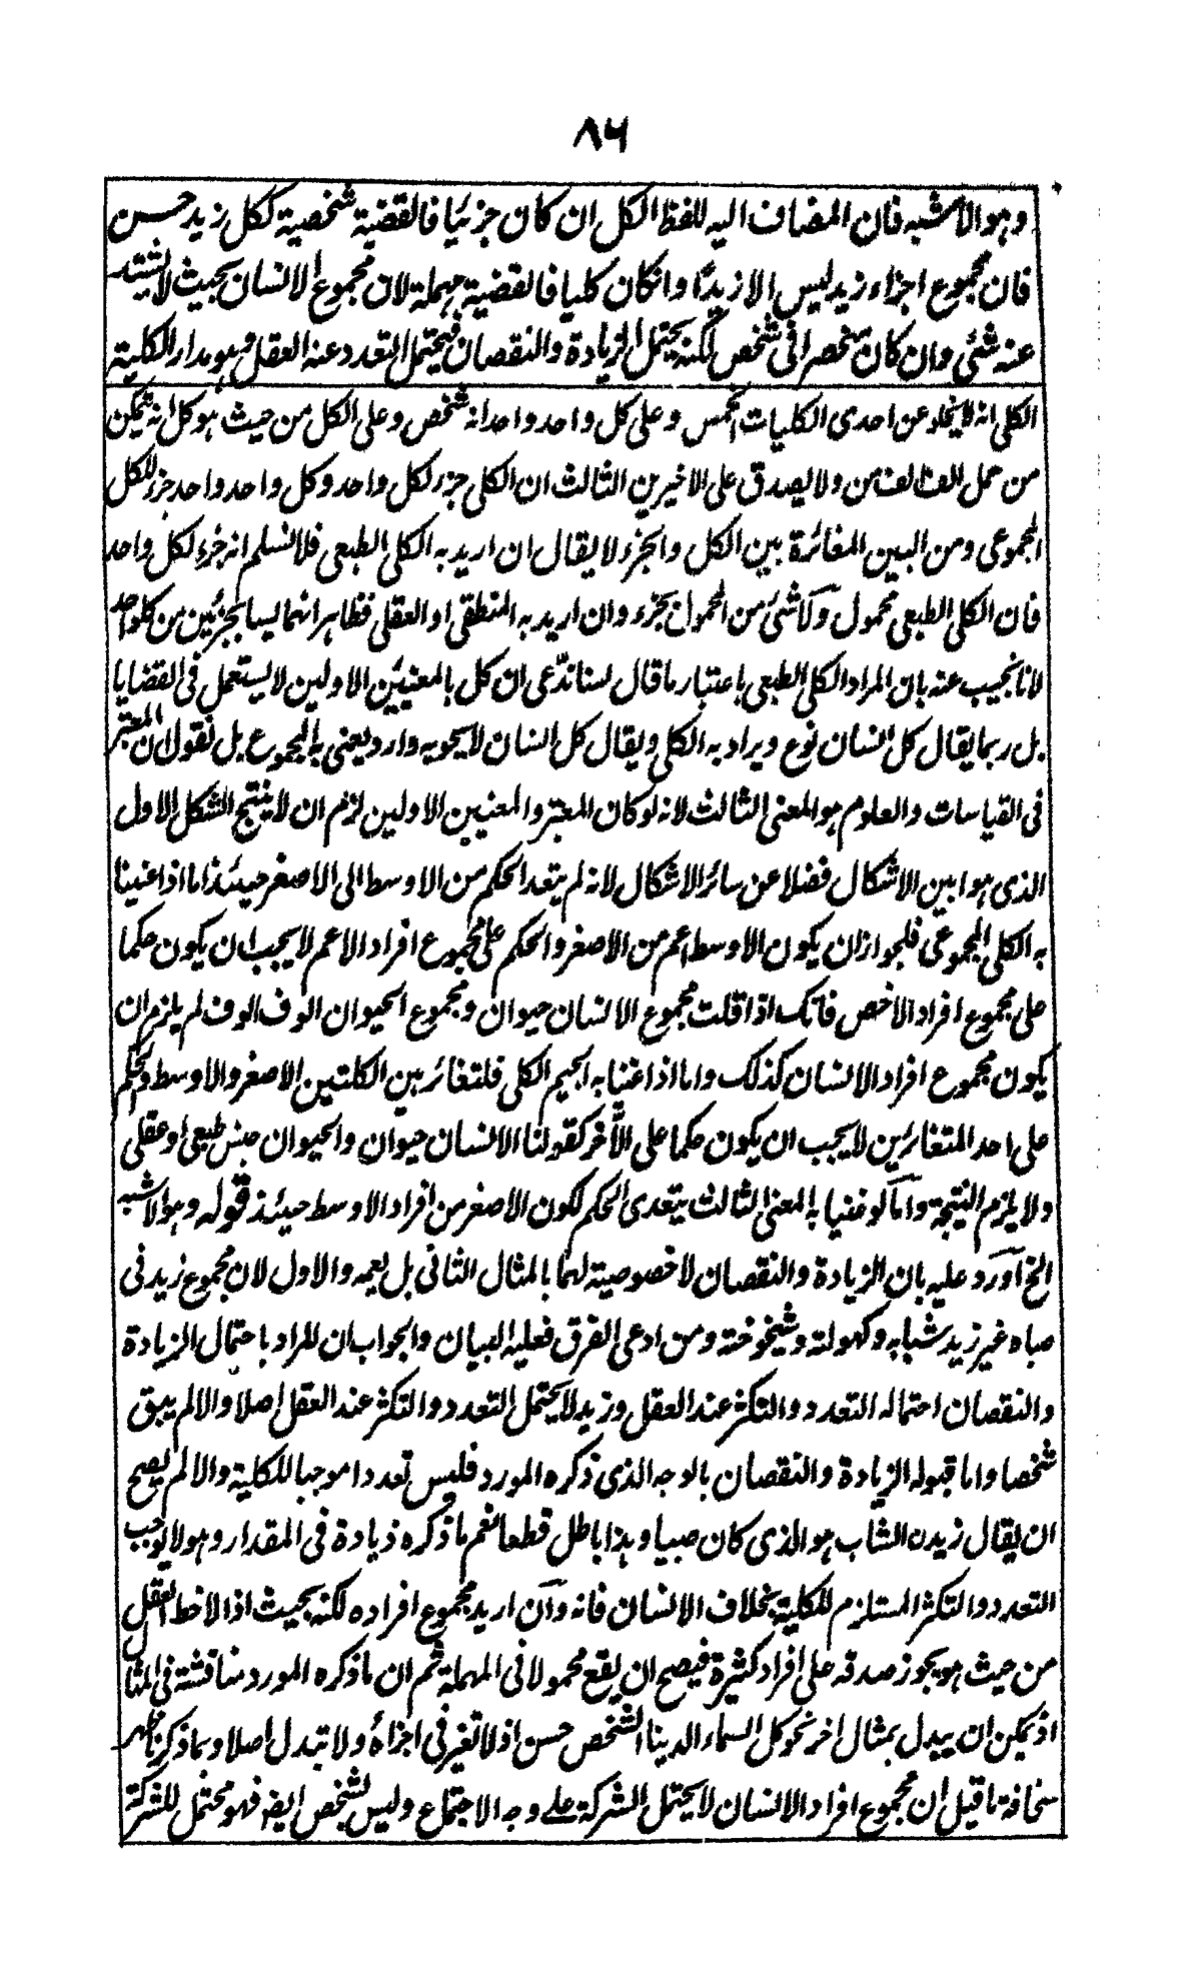 ۸۶
وهو الاشبه فان المضاف اليه للفظ الكل ان كان جزئيا فالقضية شخصية ككل زيد حسن
فان مجموع اجزاء زيد ليس الا زيدا وانكان كليا فالقضية مهملة لان مجموع الانسان بحيث لا يشتد
عنه شئ وان كان منحصرا فى شخص لكنه يحتمل الزيادة والنقصان فيحتمل التعدد عند العقل وهو مدار الكلية
الكلى انه لا يخلو عن احدى الكليات الخمس وعلى كل واحد واحد انه شخص وعلى الكل من حيث هو كل انه يتمكن
من حمل الف الف من ولا يصدق على الاخيرين الثالث ان الكلى جزء لكل واحد وكل واحد واحد جزء للكل
المجموعى ومن البين المغائرة بين الكل والجزء لا يقال ان اريد به الكلى الطبعى فلا نسلم انه جزء لكل واحد
فان الكلى الطبعى محمول ولا شئ من المحمول بجزء وان اريد به المنطقى او العقلى فظاهر انهما ليسا بجزئين من كل واحد
لانا نجيب عنه بان المراد الكلى الطبعى باعتبار ما قال لسنا ندّعى ان كل بالمعنيين الاولين لا يستعمل فى القضايا
بل ربما يقال كل انسان نوع ويراد به الكلى ويقال كل انسان لا يحويه دار ويعنى به المجموع بل نقول ان المعتبر
فى القياسات والعلوم هو المعنى الثالث لانه لو كان المعتبر والمعنيين الاولين لزم ان لا ينتج الشكل الاول
الذى هو ابين الاشكال فضلا عن سائر الاشكال لانه لم يتعد الحكم من الاوسط الى الاصغر حينئذ اما اذا عنينا
به الكلى المجموعى فلجواز ان يكون الاوسط اعم من الاصغر والحكم على مجموع افراد الاعم لا يجب ان يكون حكما
على مجموع افراد الاخص فانك اذا قلت مجموع الانسان حيوان ومجموع الحيوان الوف الوف لم يلزم ان
يكون مجموع افراد الانسان كذلك واما اذا عنينا به الكلى فلتغائر بين الكلتين الاصغر والاوسط والحكم
على احد المتغائرين لا يجب ان يكون حكما على الآخر كقولنا الانسان حيوان والحيوان جنس طبعى او عقلى
ولا يلزم النتيجة واما لو عنينا بالمعنى الثالث يتعدى الحكم لكون الاصغر من افراد الاوسط حينئذ قوله وهو الاشبه
الخ اورد عليه بان الزيادة والنقصان لا خصوصية لهما بالمثال الثانى بل يعمه والاول لان مجموع زيد فى
صباه غير زيد شبابه وكهولته وشيخوخته ومن ادعى الفرق فعليه البيان والجواب ان المراد باحتمال الزيادة
والنقصان احتماله التعدد والتكثر عند العقل وزيد لا يحتمل التعدد والتكثر عند العقل اصلا والا لم يبق
شخصا واما قبوله الزيادة والنقصان بالوجه الذى ذكره المورد فليس تعددا موجبا للكلية والا لم يصح
ان يقال زيدن الشاب هو الذى كان صبيا وهذا باطل قطعا نعم ما ذكره زيادة فى المقدار وهو لا يوجب
التعدد والتكثر المستلزم للكلية بخلاف الانسان فانه وان اريد مجموع افراده لكنه بحيث اذا لاحظ العقل
من حيث هو يجوز صدقه على افراد كثيرة فيصح ان يقع محمولا فى المهملة ثم ان ما ذكره المورد مناقشة فى المثال
اذ يمكن ان يبدل بمثال اخر نحو كل السماء الدينا الشخص حسن اذ لا تغير فى اجزائه ولا تبدل اصلا وبما ذكرنا ظهر
سخافة ما قيل ان مجموع افراد الانسان لا يحتمل الشركة على وجه الاجتماع وليس لشخص ايضا فهو محتمل للشركة